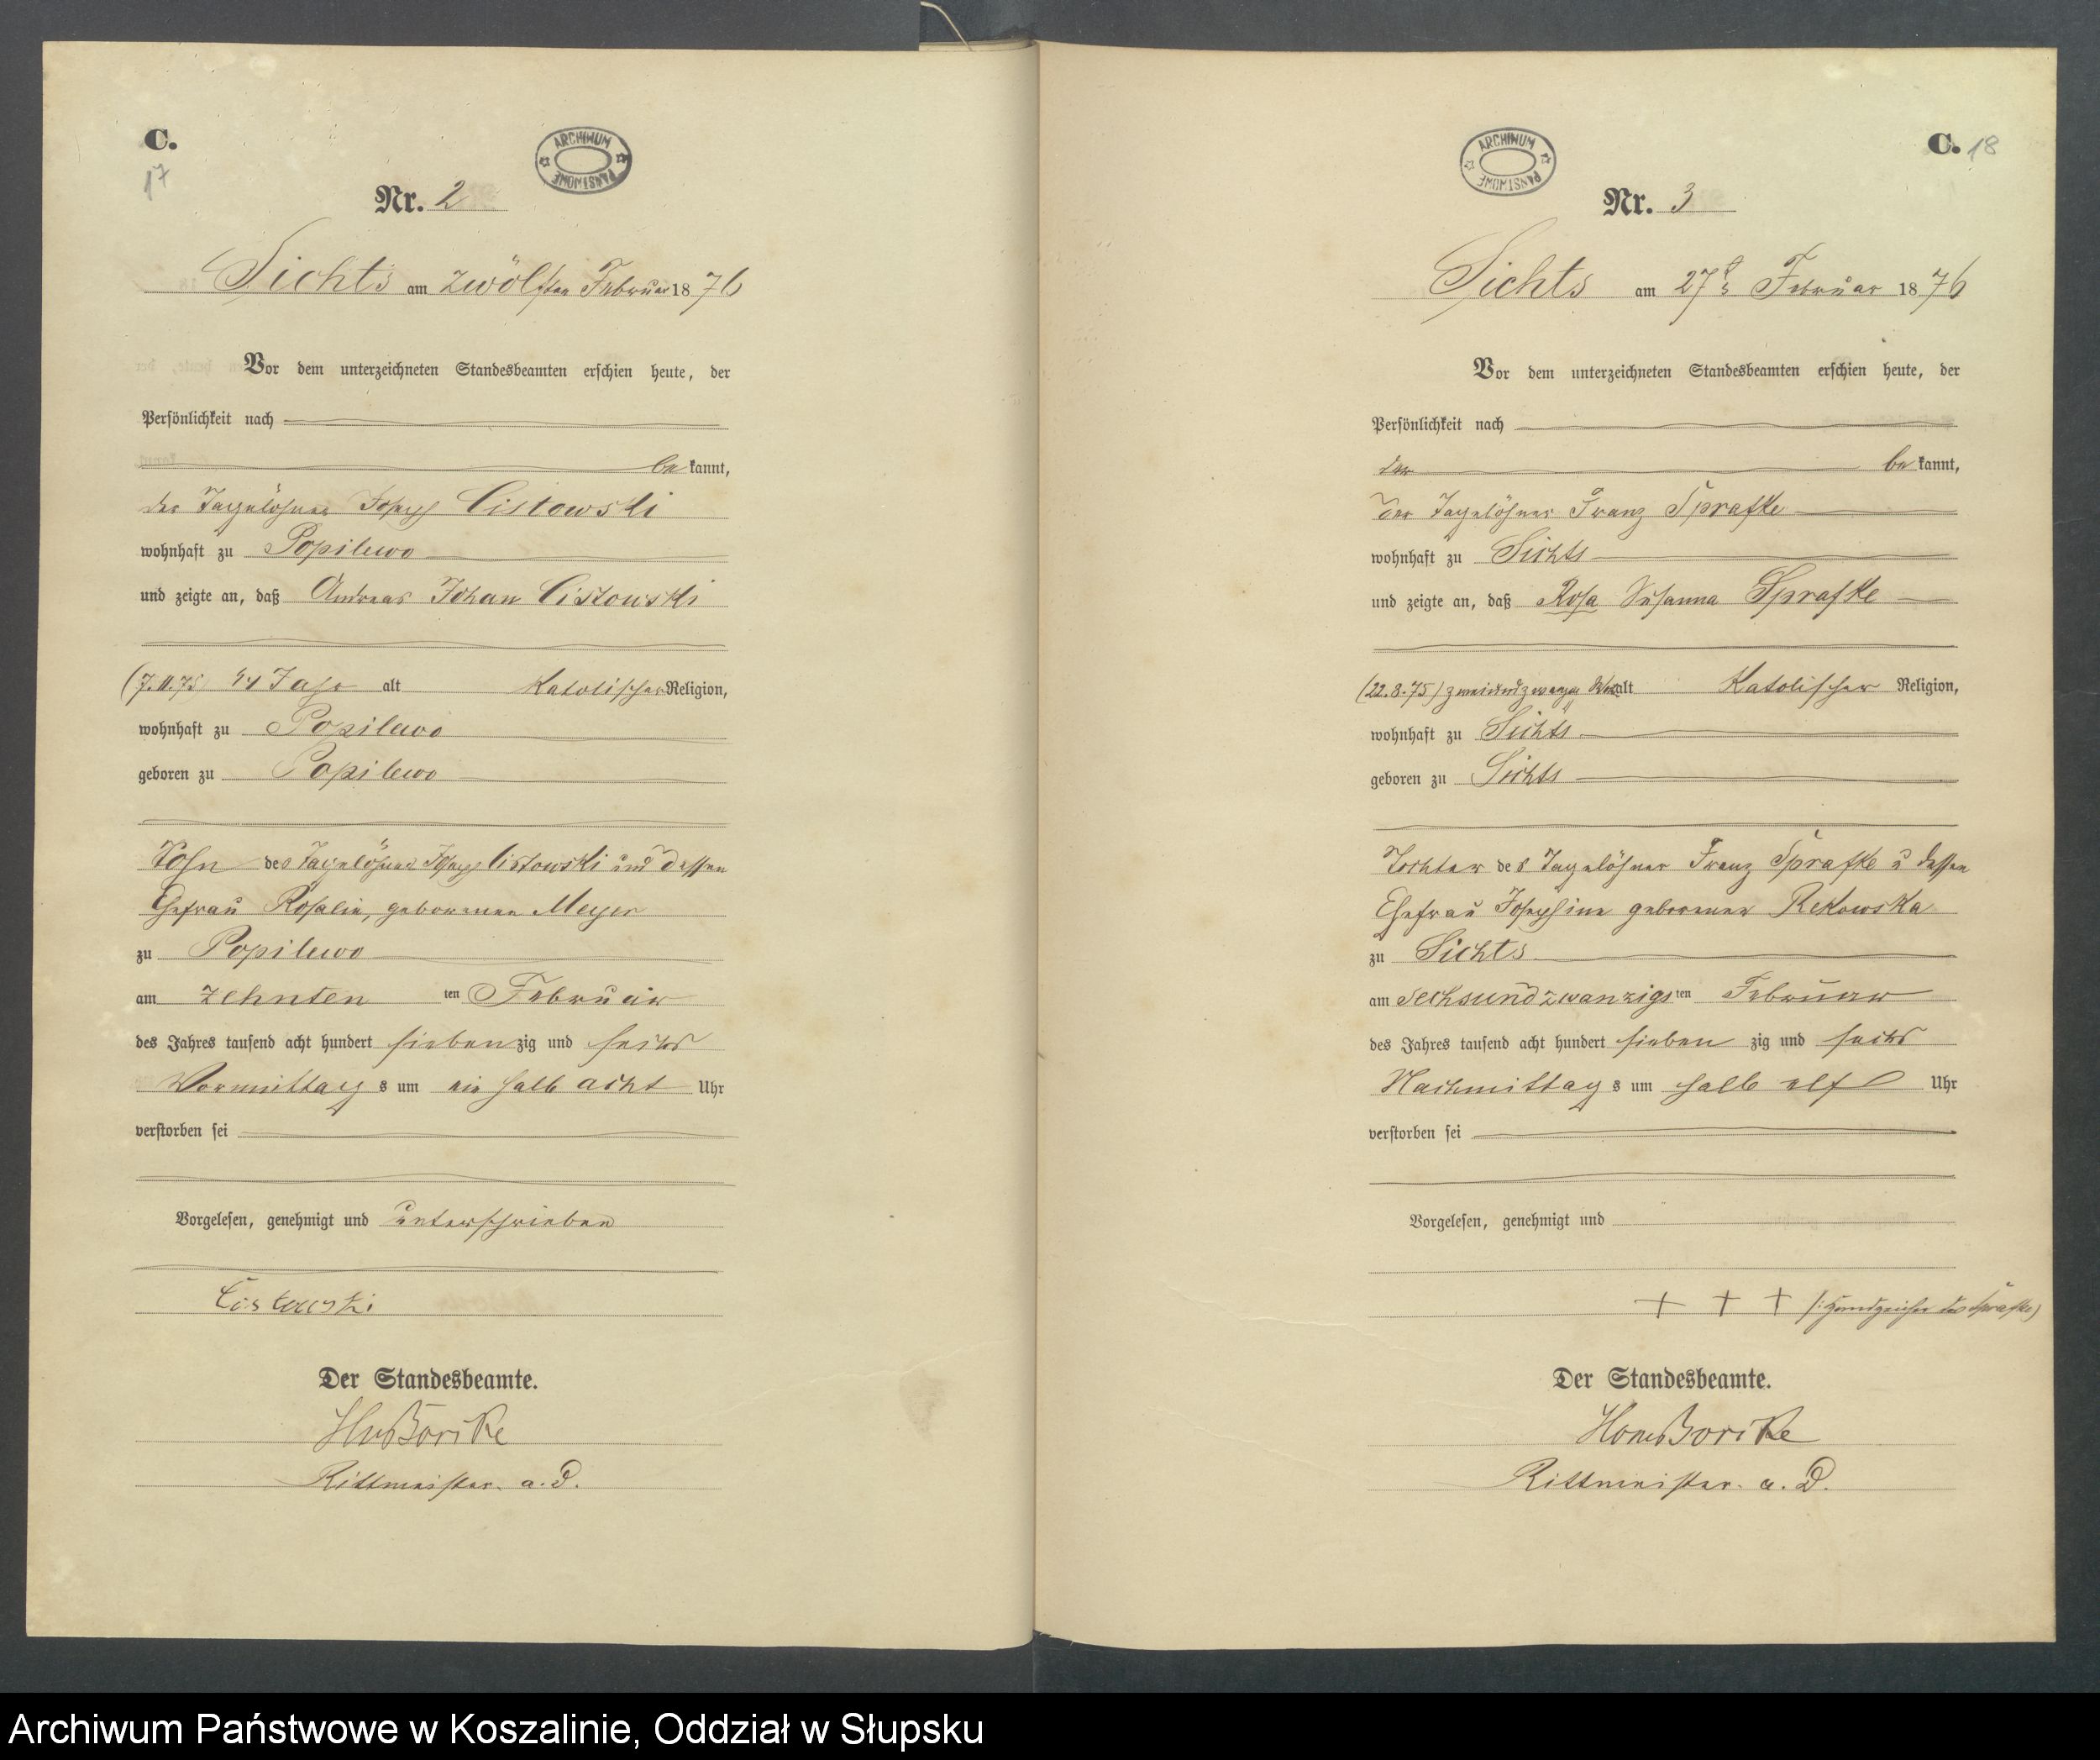 C.
17
ARCHIWUM PAŃSTWOWE
Nr. 2
Sichts am zwölften Februar 1876
Vor dem unterzeichneten Standesbeamten erschien heute, der
Persönlichkeit nach
bekannt,
der Tagelöhner Joseph Cistowski
wohnhaft zu Popilewo
und zeigte an, daß Andreas Johan Cistowski
(7.11.75) 1/4 Jahr alt Katolischer Religion,
wohnhaft zu Popilewo
geboren zu Popilewo
Sohn des Tagelöhner Joseph Cistowski und dessen
Ehefrau Rosalie, geborenen Meyer
zu Popilewo
am zehnten ten Februar
des Jahres tausend acht hundert siebenzig und sechs
Vormittags um ein halb acht Uhr
verstorben sei
Vorgelesen, genehmigt und unterschrieben
Cistowski
Der Standesbeamte.
Rittmeister. a. D.
C. 18
ARCHIWUM PAŃSTWOWE
Nr. 3
Sichts am 27t Februar 1876
Vor dem unterzeichneten Standesbeamten erschien heute, der
Persönlichkeit nach
bekannt,
der Tagelöhner Franz Sprafke
wohnhaft zu Sichts
und zeigte an, daß Rosa Susanna Sprafke
(22.8.75) zweiundzwanzig alt Katolischer Religion,
wohnhaft zu Sichts
geboren zu Sichts
Tochter des Tagelöhner Franz Sprafke u dessen
Ehefrau Josephine geborenen Rekowska
zu Sichts
am sechsundzwanzigsten Februar
des Jahres tausend acht hundert siebenzig und sechs
Nachmittags um halb elf Uhr
verstorben sei
Vorgelesen, genehmigt und
+ + + (: Handzeichen des Sprafke)
Der Standesbeamte.
Rittmeister. a. D.
Archiwum Państwowe w Koszalinie, Oddział w Słupsku